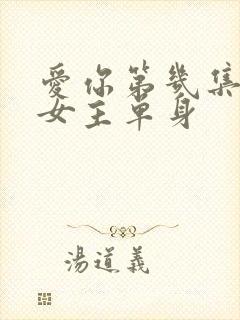 愛你第幾集
女主單身
湯道義